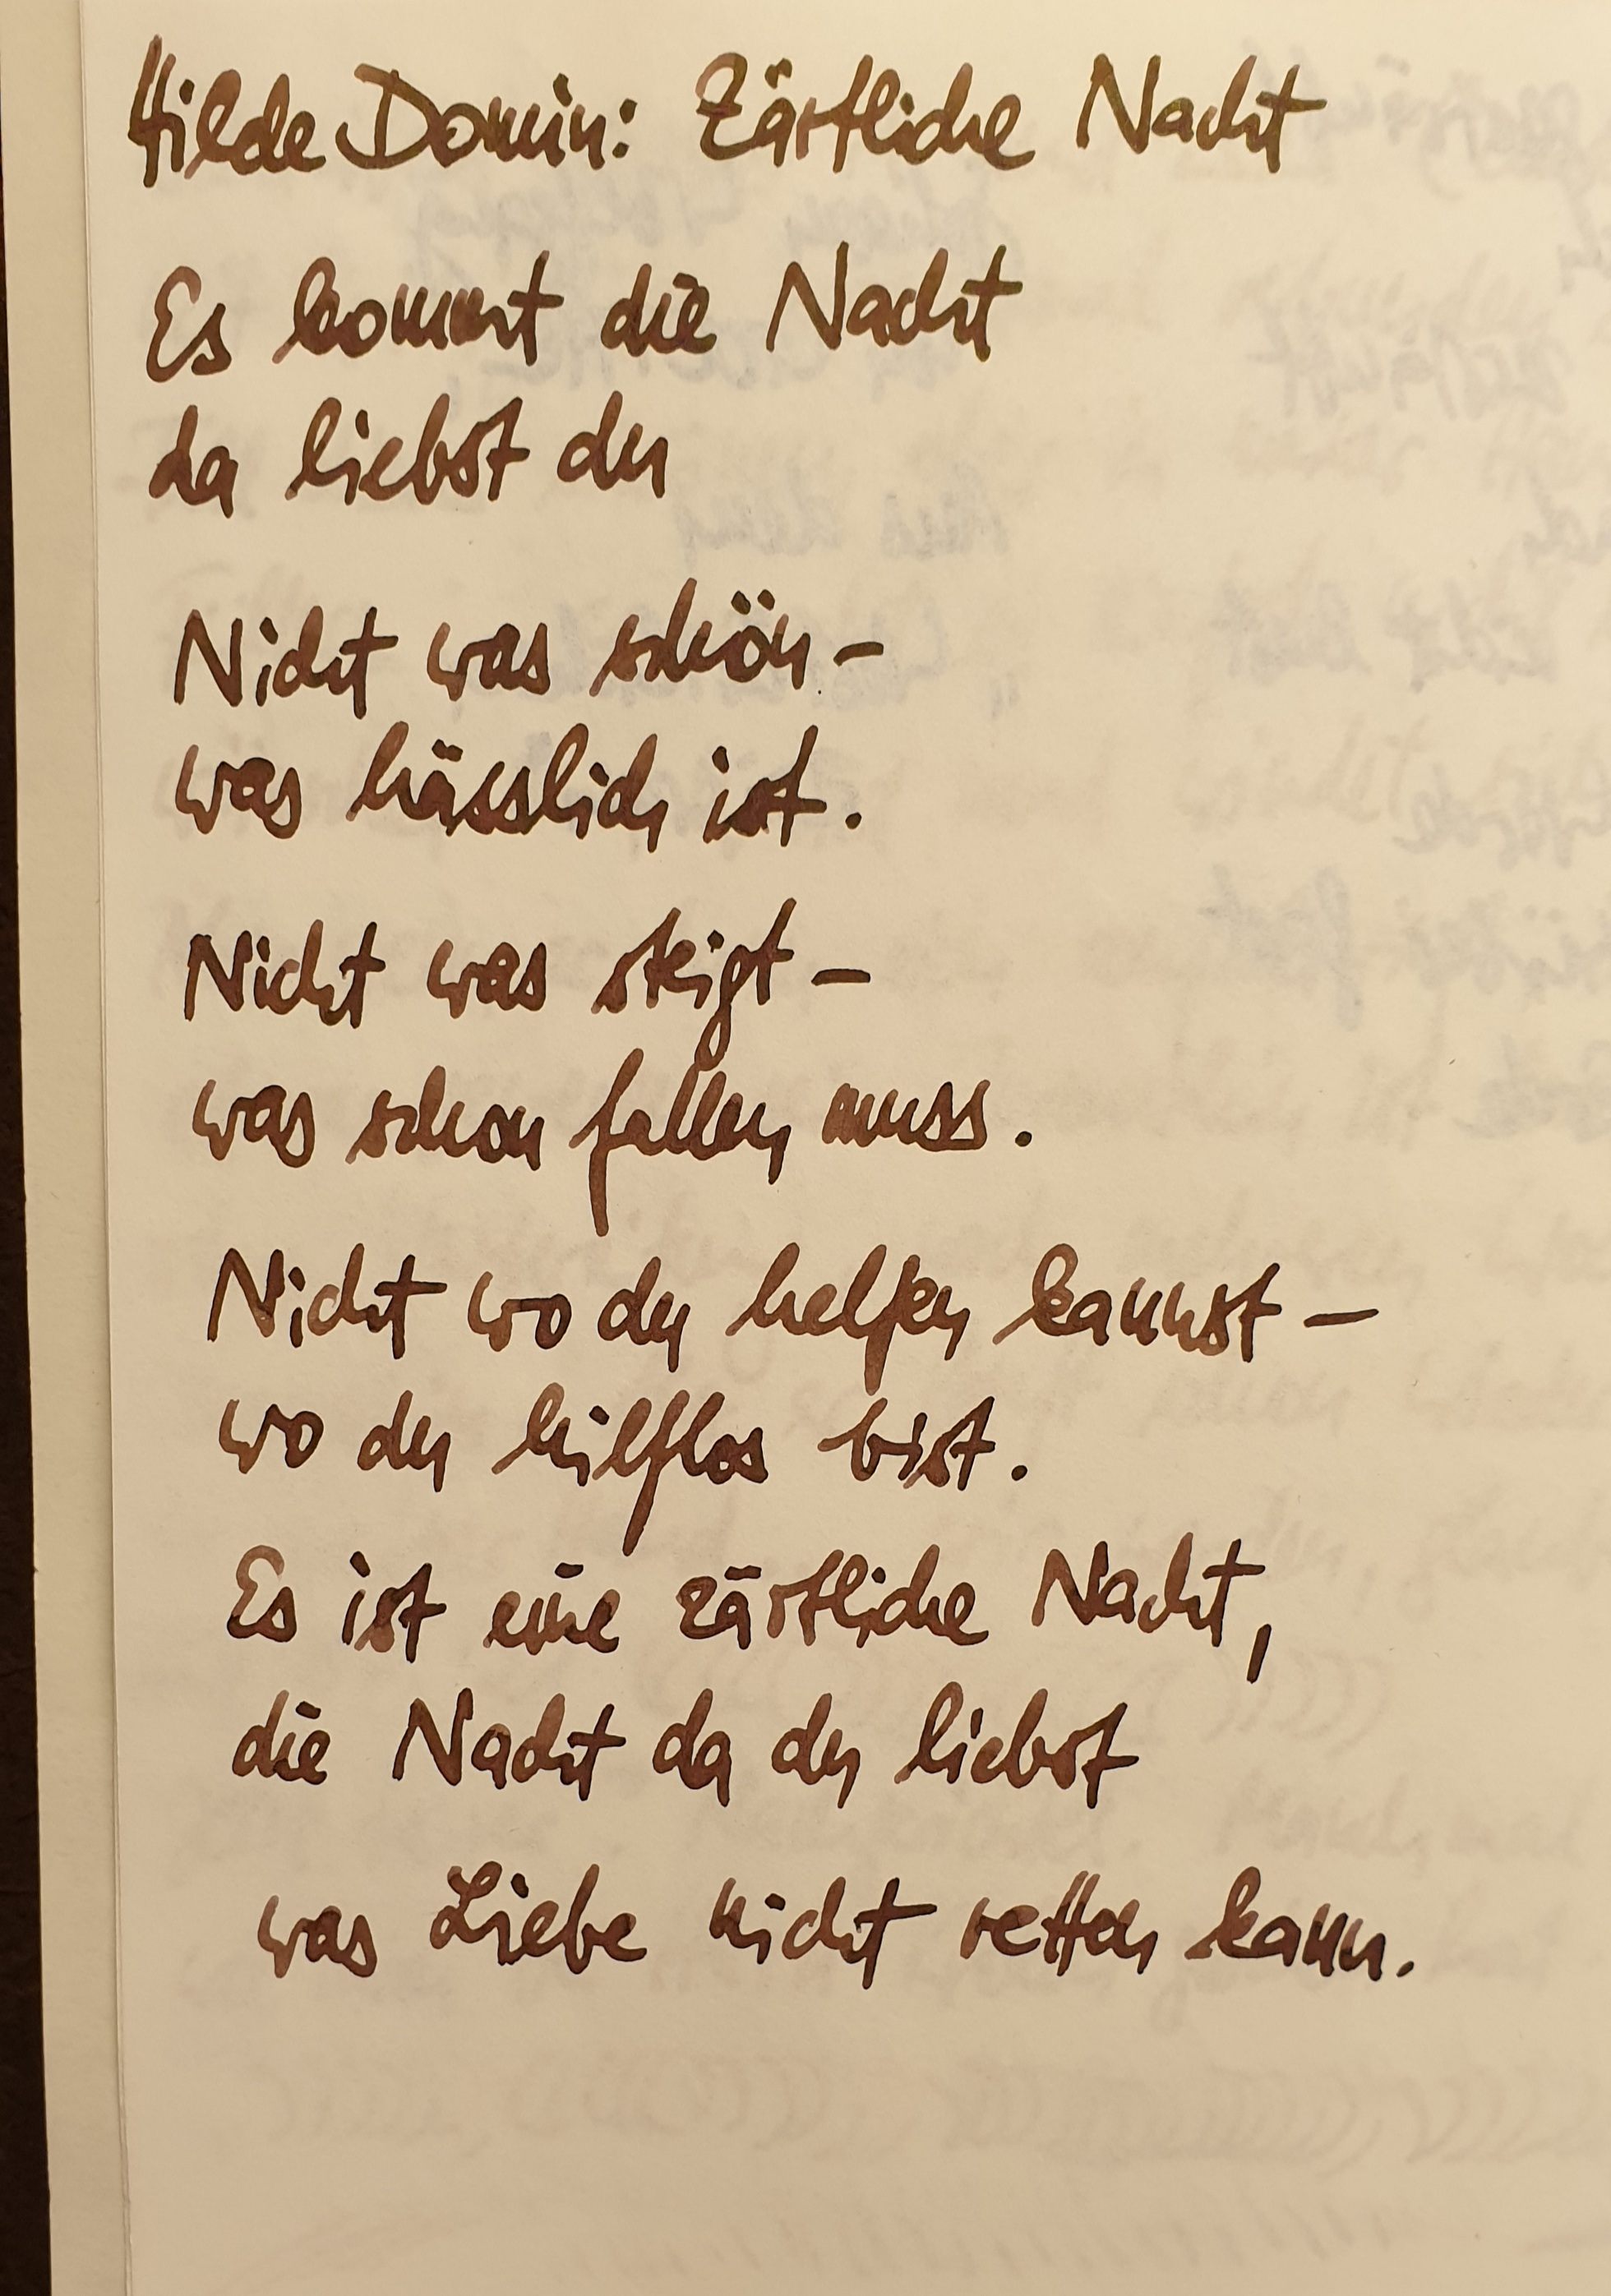 Hilde Domin: Zärtliche Nacht
Es kommt die Nacht
da liebst du
Nicht was schön –
was hässlich ist.
Nicht was steigt –
was schon fallen muss.
Nicht wo du helfen kannst –
wo du hilflos bist.
Es ist eine zärtliche Nacht,
die Nacht da du liebst
was Liebe nicht retten kann.